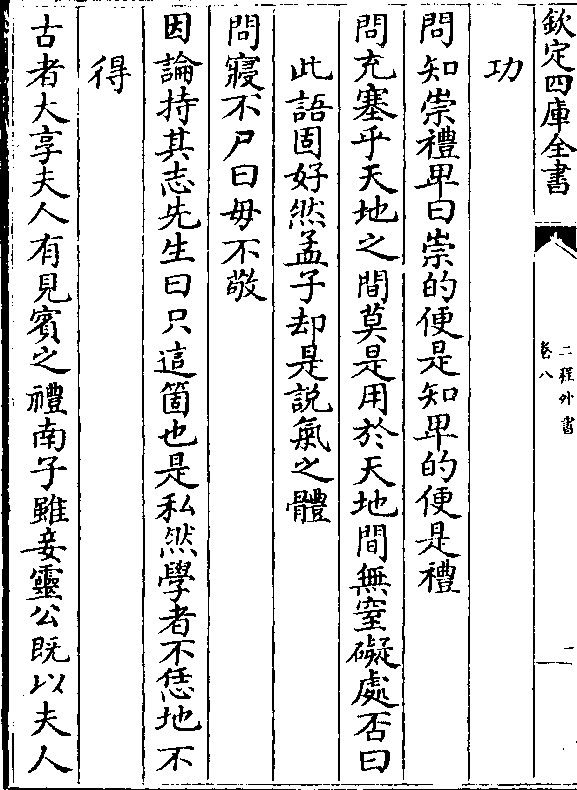 欽定四庫全書
二程外書
卷八
一
功
問知崇禮卑曰崇的便是知卑的便是禮
問充塞乎天地之間莫是用於天地間無窒礙處否曰
此語固好然孟子却是説氣之體
問寢不尸曰毋不敬
因論持其志先生曰只這箇也是私然學者不恁地不
得
古者大享夫人有見賓之禮南子雖妾靈公既以夫人